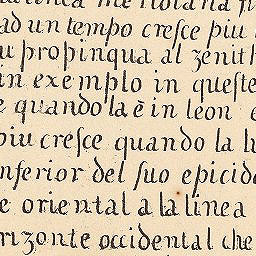 ad un tempo creſce piu
propinqua al zenith
in exemplo in queſte
quando la è in leon
piu creſce quando la
inferior del ſuo epicid
e oriental a la linea
rizonte occidental che